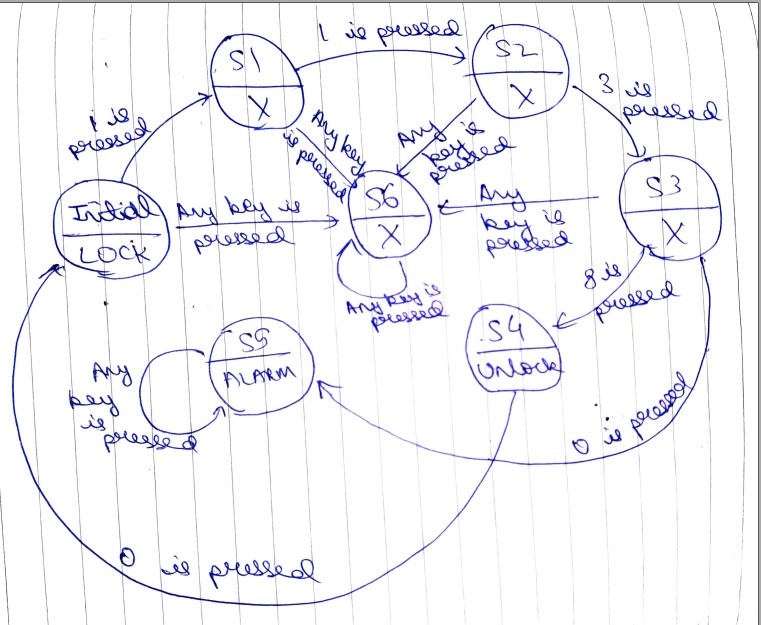 1 is pressed
S1
X
S2
X
3 is
pressed
1 is
pressed
Any key
is pressed
Any
key is
pressed
S3
X
Initial
LOCK
Any key is
pressed
S6
X
Any
key is
pressed
Any key is
pressed
8 is
pressed
S4
Unlock
S5
ALARM
Any
key
is
pressed
0 is pressed
0 is pressed